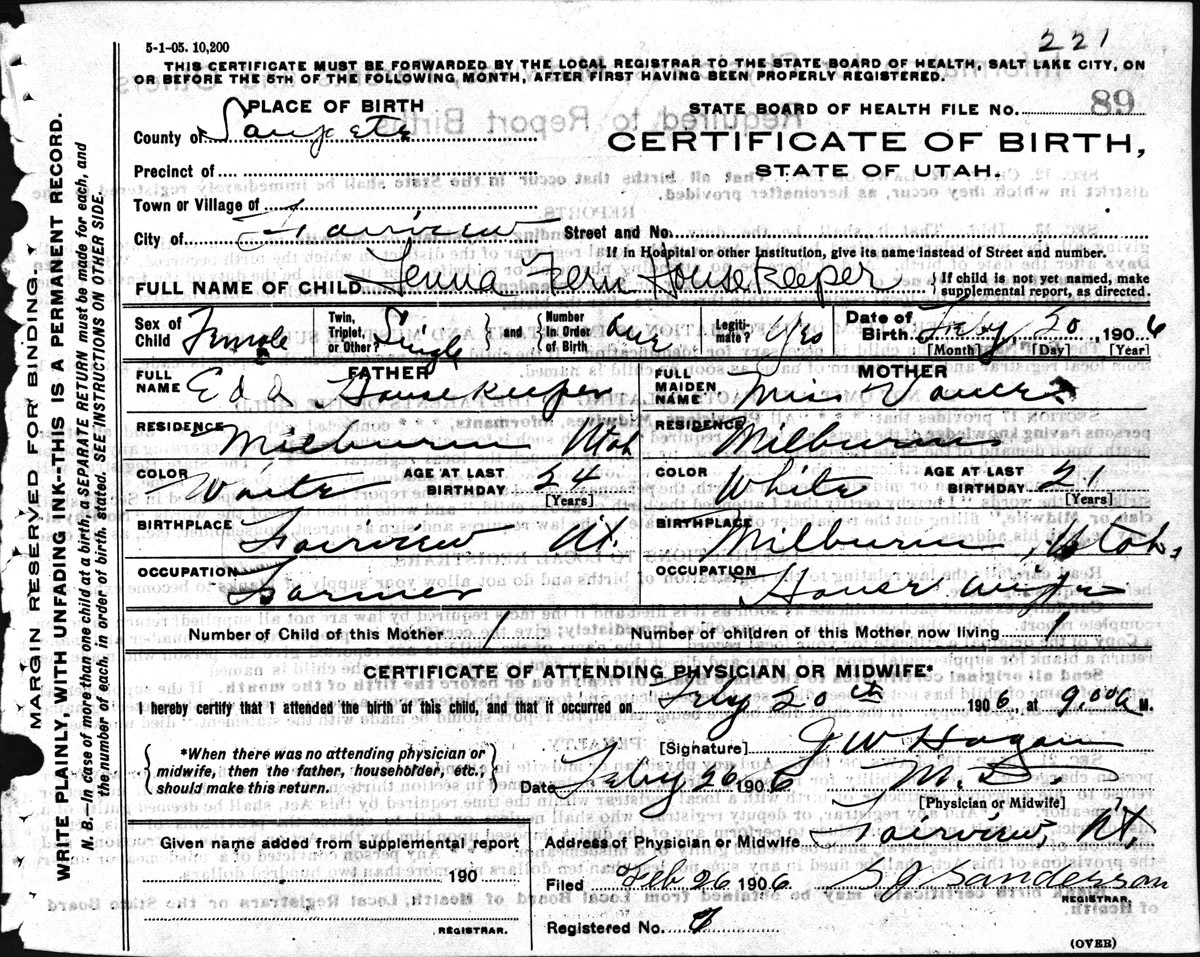 5-1-05. 10,200
221
THIS CERTIFICATE MUST BE FORWARDED BY THE LOCAL REGISTRAR TO THE STATE BOARD OF HEALTH, SALT LAKE CITY, ON
OR BEFORE THE 5TH OF THE FOLLOWING MONTH, AFTER FIRST HAVING BEEN PROPERLY REGISTERED.
PLACE OF BIRTH
STATE BOARD OF HEALTH FILE No. 89
County of Sanpete
CERTIFICATE OF BIRTH,
Precinct of
STATE OF UTAH.
Town or Village of
City of Fairview Street and No.
If in Hospital or other Institution, give its name instead of Street and number.
FULL NAME OF CHILD Fern House Keeper { If child is not yet named, make
supplemental report, as directed.
Sex of Child Female Twin, Triplet, or Other? Single } and { Number In Order of Birth one Legiti-mate? Yes Date of Birth Feby 20, 1906
[Month] [Day] [Year]
FATHER MOTHER
FULL NAME Ed House Keeper FULL MAIDEN NAME Miss
RESIDENCE Milburn Utah RESIDENCE Milburn
COLOR White AGE AT LAST BIRTHDAY 24 [Years] COLOR White AGE AT LAST BIRTHDAY 21 [Years]
BIRTHPLACE Fairview Ut. BIRTHPLACE Milburn, Utah
OCCUPATION Farmer OCCUPATION House wife
Number of Child of this Mother 1 Number of children of this Mother now living 1
CERTIFICATE OF ATTENDING PHYSICIAN OR MIDWIFE*
I hereby certify that I attended the birth of this child, and that it occurred on Feby 20th 1906, at 9.00 a M.
{ *When there was no attending physician or
midwife, then the father, householder, etc.,
should make this return. }
[Signature] J W Hagan
Date Feby 26 1906 M. D.
[Physician or Midwife]
Given name added from supplemental report
190
REGISTRAR.
Address of Physician or Midwife Fairview, Ut.
Filed Feb 26 1906 S J Sanderson
REGISTRAR.
Registered No. 7
(OVER)
MARGIN RESERVED FOR BINDING.
WRITE PLAINLY, WITH UNFADING INK--THIS IS A PERMANENT RECORD.
N. B.—In case of more than one child at a birth, a SEPARATE RETURN must be made for each, and
the number of each, in order of birth, stated. SEE INSTRUCTIONS ON OTHER SIDE.